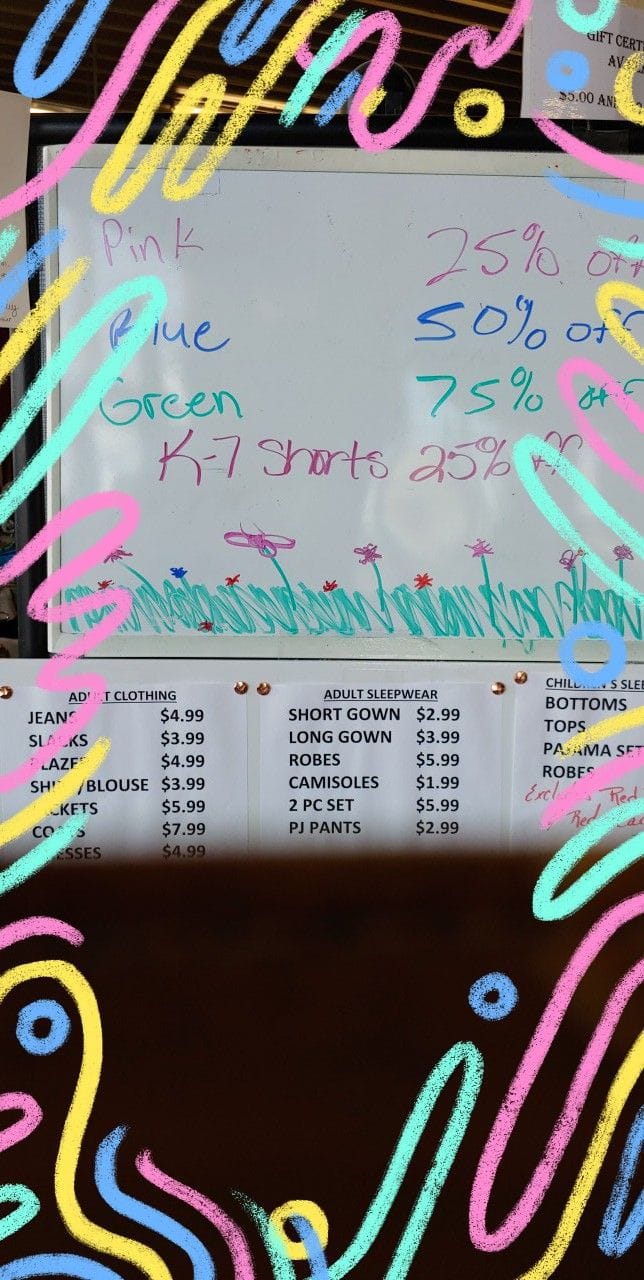 GIFT CERT
AV
$5.00 AN
Pink 25% off
Blue 50% off
Green 75% off
K-7 Shorts 25% off
ADULT CLOTHING
JEANS $4.99
SLACKS $3.99
BLAZER $4.99
SHIRT/BLOUSE $3.99
JACKETS $5.99
COATS $7.99
DRESSES $4.99
ADULT SLEEPWEAR
SHORT GOWN $2.99
LONG GOWN $3.99
ROBES $5.99
CAMISOLES $1.99
2 PC SET $5.99
PJ PANTS $2.99
CHILDREN'S SLEE
BOTTOMS
TOPS
PAJAMA SET
ROBES
Red
Red